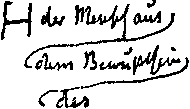 der Mensch aus
dem Bewußtsein
des